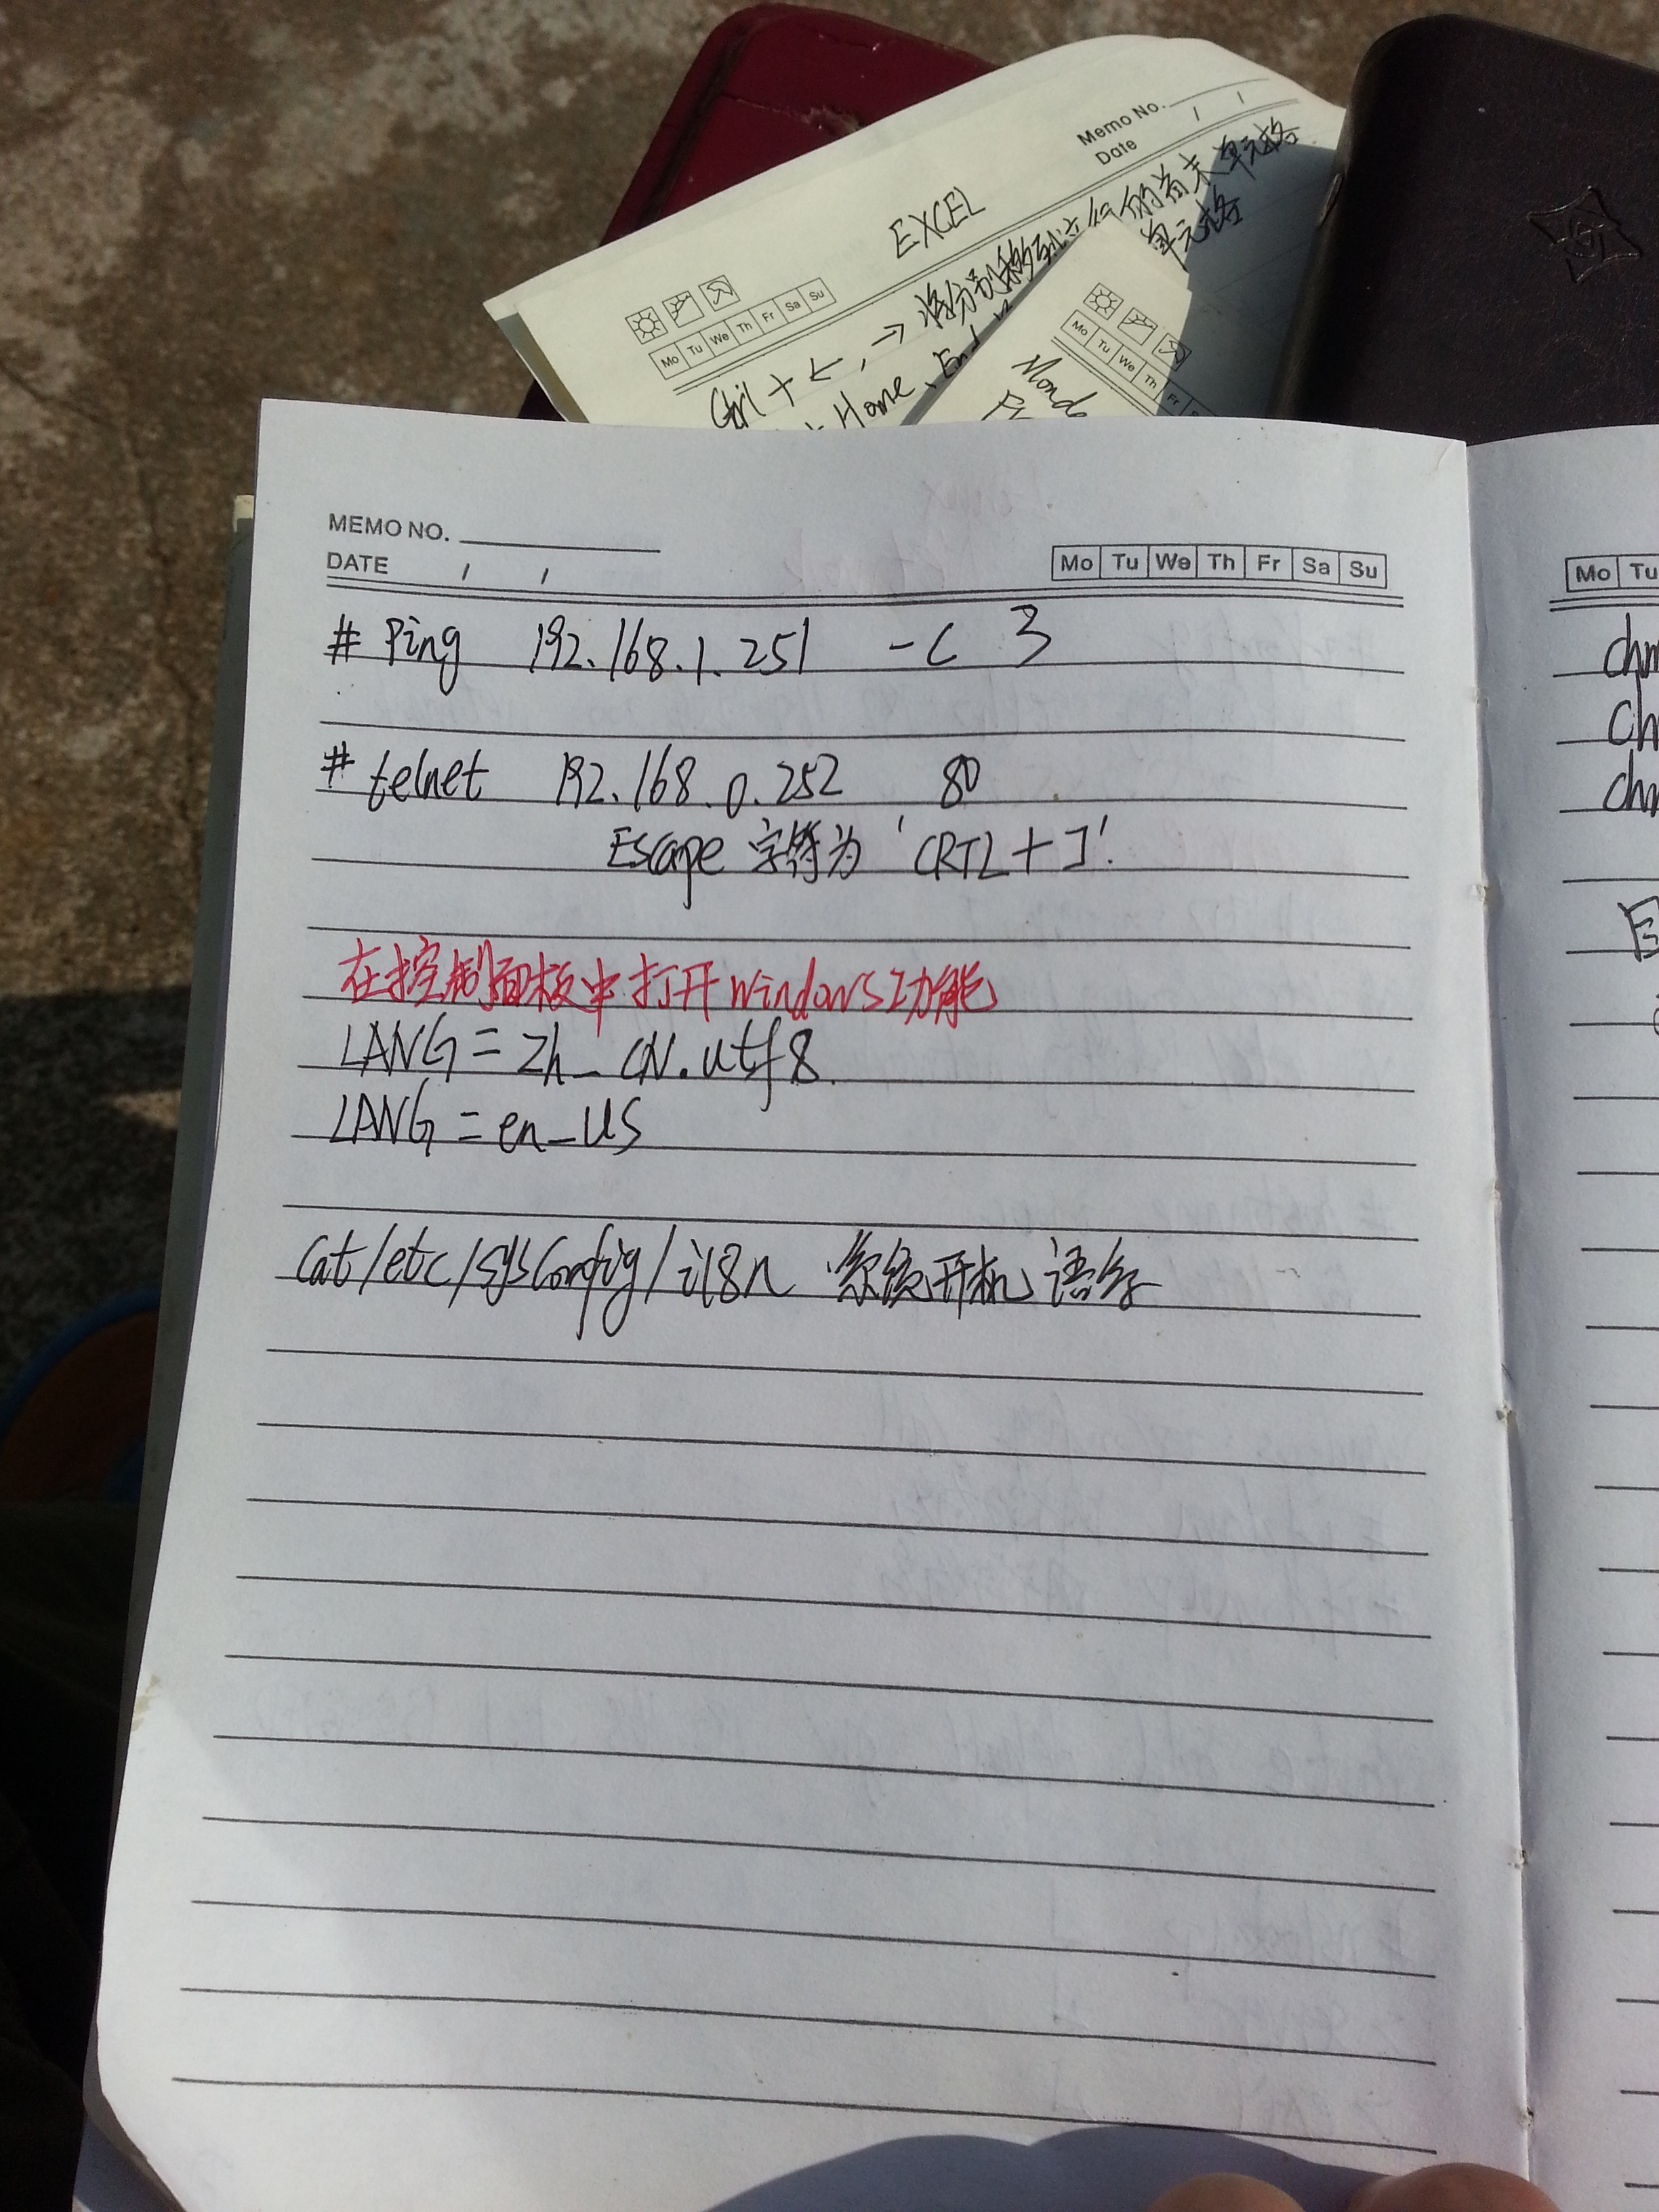 Memo No.
Date / /
EXCEL
Mo Tu We Th Fr Sa Su
Ctrl + ←, → 将分别移到 的首末单元格
Home、End 单元格
Mo Tu We Th Fr
MEMO NO.
DATE / /
Mo Tu We Th Fr Sa Su
# Ping 192.168.1.251 -c 3
# telnet 192.168.0.252 80
Escape 字符为 'CRTL+]'.
在控制面板中打开windows功能
LANG=zh_CN.utf8.
LANG=en_US
Cat/etc/sysConfig/i18n 系统开机语言
Mo Tu